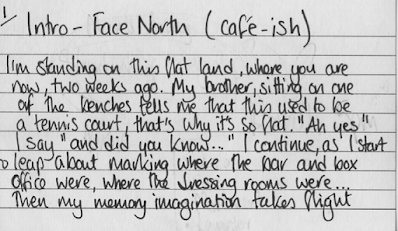 1/ Intro - Face North (café-ish)
I'm standing on this flat land, where you are
now, two weeks ago. My brother, sitting on one
of the benches tells me that this used to be
a tennis court, that's why it's so flat. "Ah yes"
I say "and did you know..." I continue, as I start
to leap about marking where the bar and box
office were, where the dressing rooms were...
Then my memory imagination takes flight